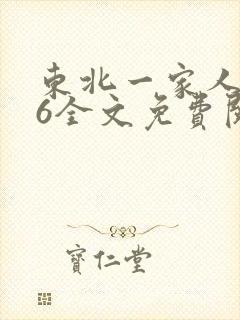 東北一家人
6全文免費閱
寶仁堂